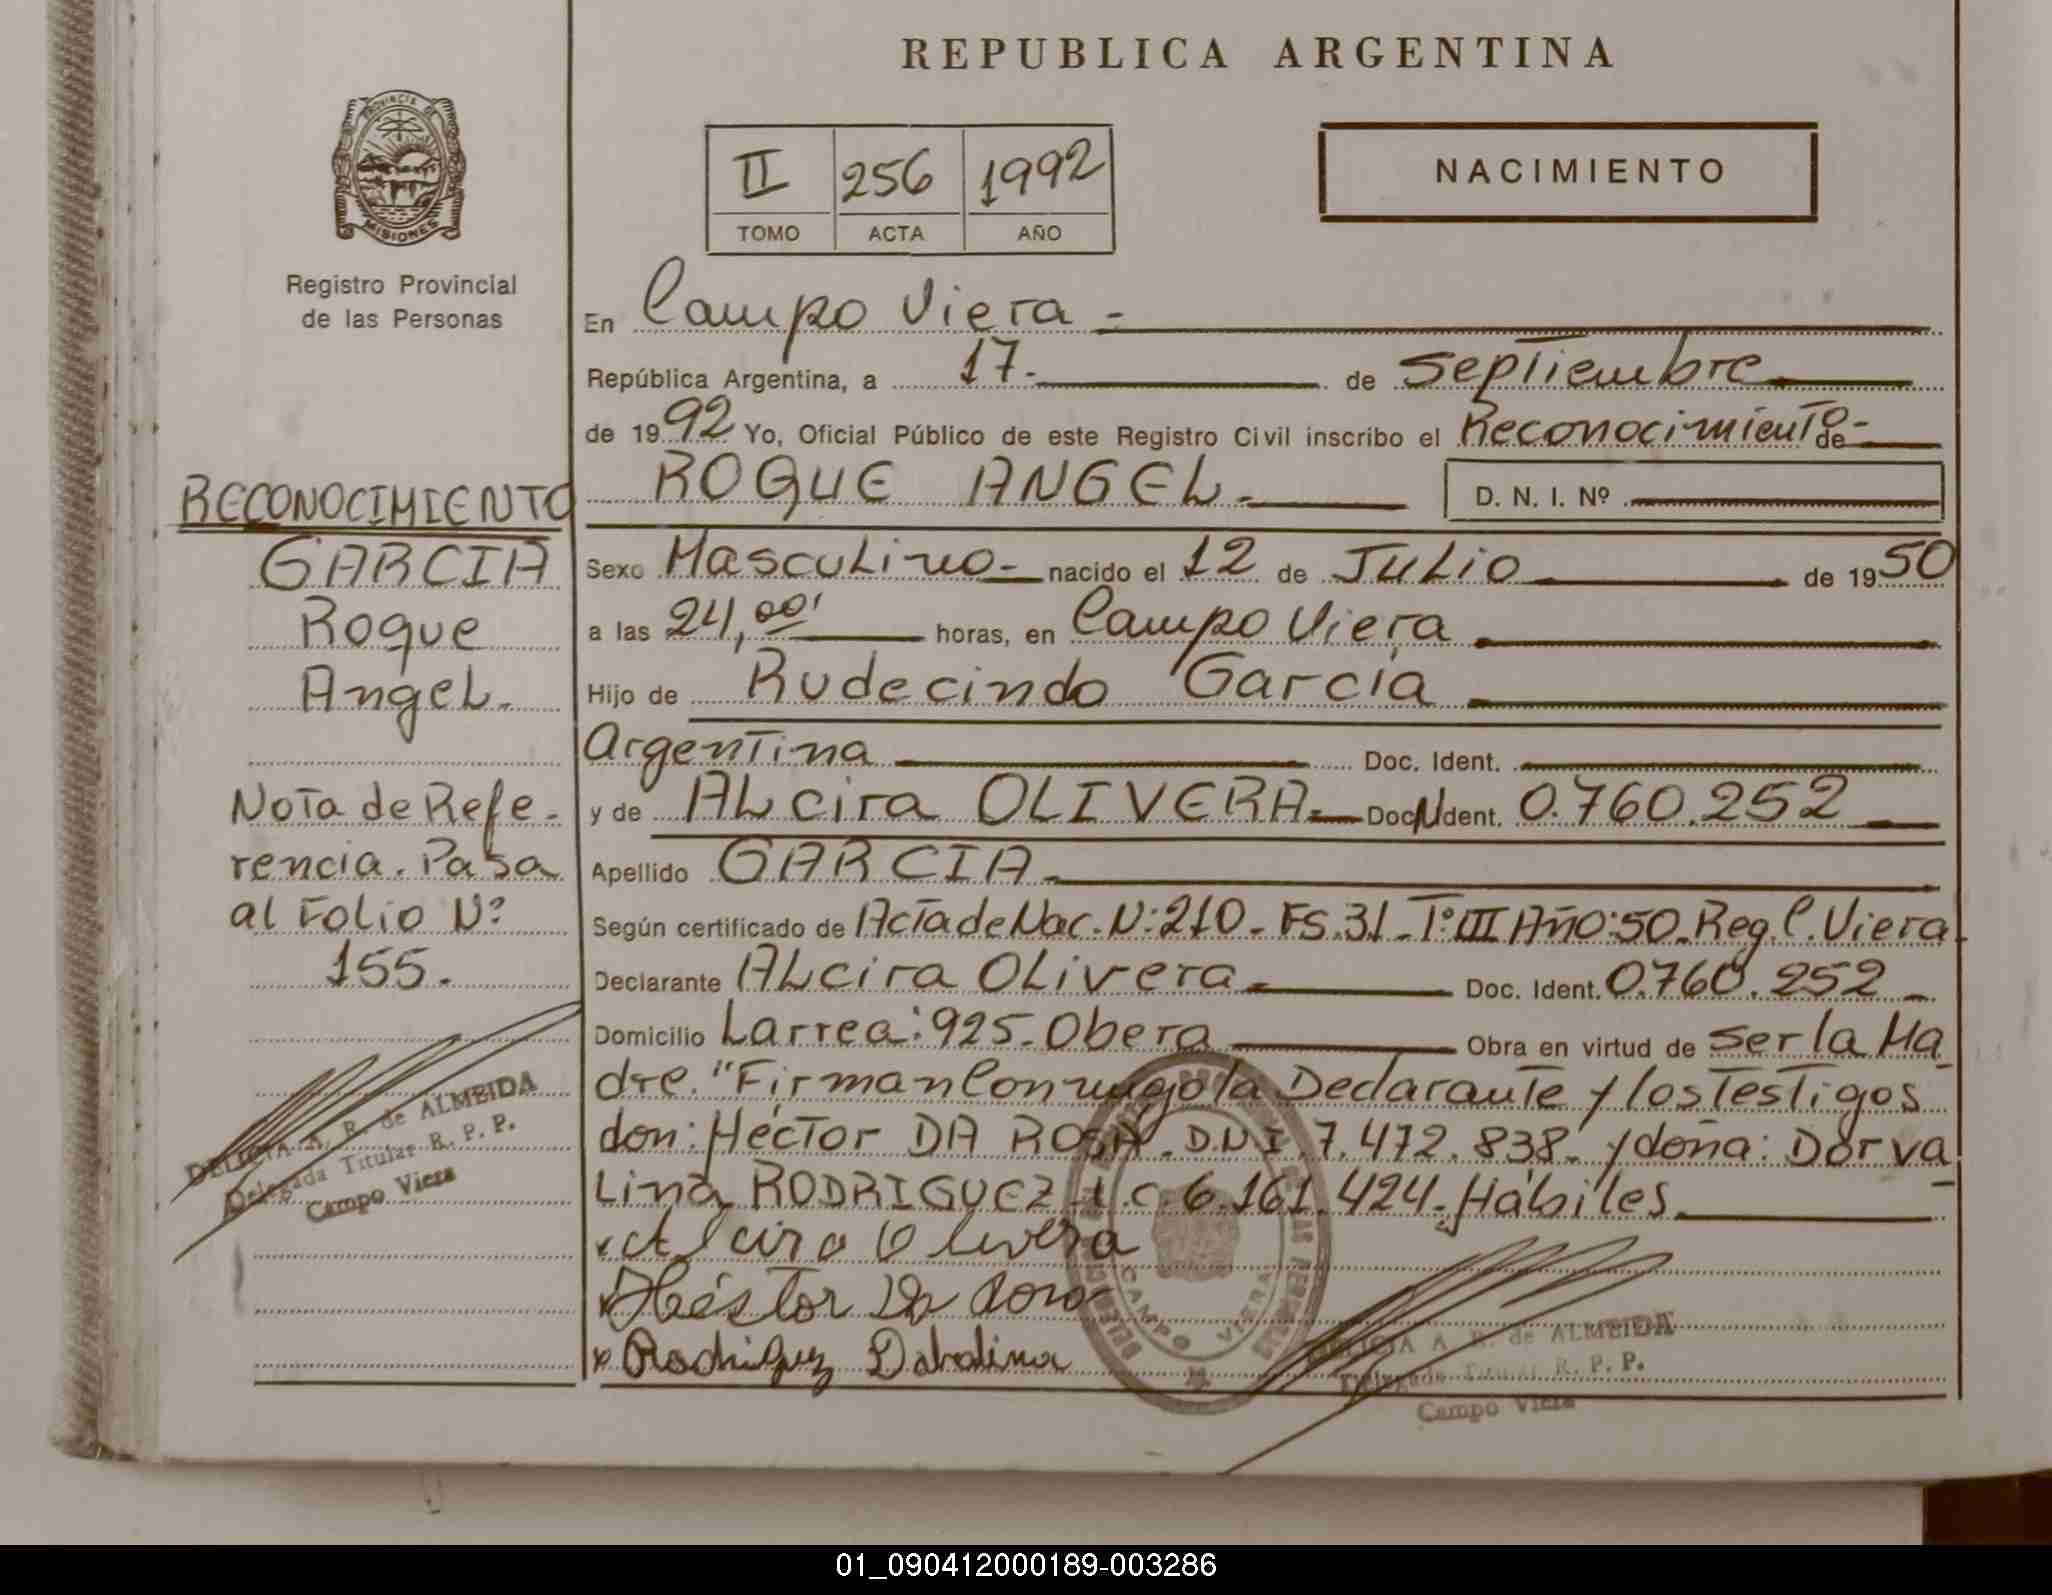 REPUBLICA ARGENTINA
PROVINCIA DE
MISIONES
Registro Provincial
de las Personas
II 256 1992
TOMO ACTA AÑO
NACIMIENTO
En Campo Viera -
República Argentina, a 17. de Septiembre
de 1992 Yo, Oficial Público de este Registro Civil inscribo el Reconocimiento- de
ROQUE ANGEL. D. N. I. Nº
Sexo Masculino- nacido el 12 de Julio de 1950
a las 24,00' horas, en Campo Viera
Hijo de Rudecindo García
Argentina Doc. Ident.
y de ALcira OLIVERA- Doc. Ident. 0.760.252
Apellido GARCIA-
Según certificado de Acta de Nac. N:210- FS.31- Tº III Año:50. Reg. C. Viera
Declarante ALcira OLivera. Doc. Ident. 0.760.252 -
Domicilio Larrea: 925- Obera Obra en virtud de ser la Ma
dre. "Firman Conmigo la Declarante y los Testigos
don: Héctor DA ROSA. D.N.I. 7.472.838. y doña: Dorva
Lina RODRIGUEZ L.C. 6.161.424. Hábiles.
x Alcira Olivera
x Héctor Da Rosa
x Rodriguez Dabalina
CAMPO VIERA
DELICIA A. R. de ALMEIDA
Delegada Titular R. P. P.
Campo Viera
RECONOCIMIENTO
GARCIA
Roque
AngeL.
Nota de Refe-
rencia. Pasa
al Folio Nº
155.
DELICIA A. R. de ALMEIDA
Delegada Titular R. P. P.
Campo Viera
01_090412000189-003286